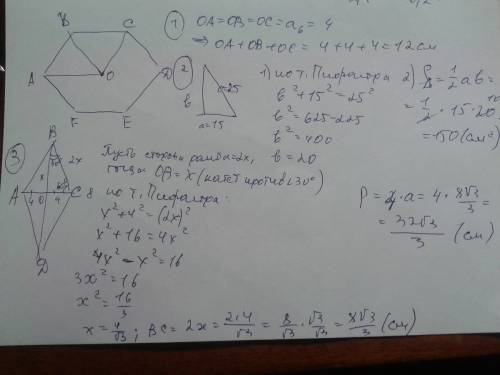 ① OA=OB=OC=a₆=4
⇒ OA+OB+OC=4+4+4=12см
B C
A O D
F E
②
в 25
a=15
1) по т. Пифагора
в²+15²=25²
в²=625-225
в²=400
в=20
2) S=½ab=
=½·15·20=
=150(см²)
③
B
30° 2x
x
A 4 O 4 C 8
D
Пусть сторона ромба=2x,
тогда OB=x (катет против ∠30°)
по т. Пифагора:
x²+4²=(2x)²
x²+16=4x²
4x²-x²=16
3x²=16
x²=16/3
x=4/√3; BC=2x=2·4/√3=8/√3·√3/√3=8√3/3(см)
P=4·a=4·8√3/3=
=32√3/3(см)